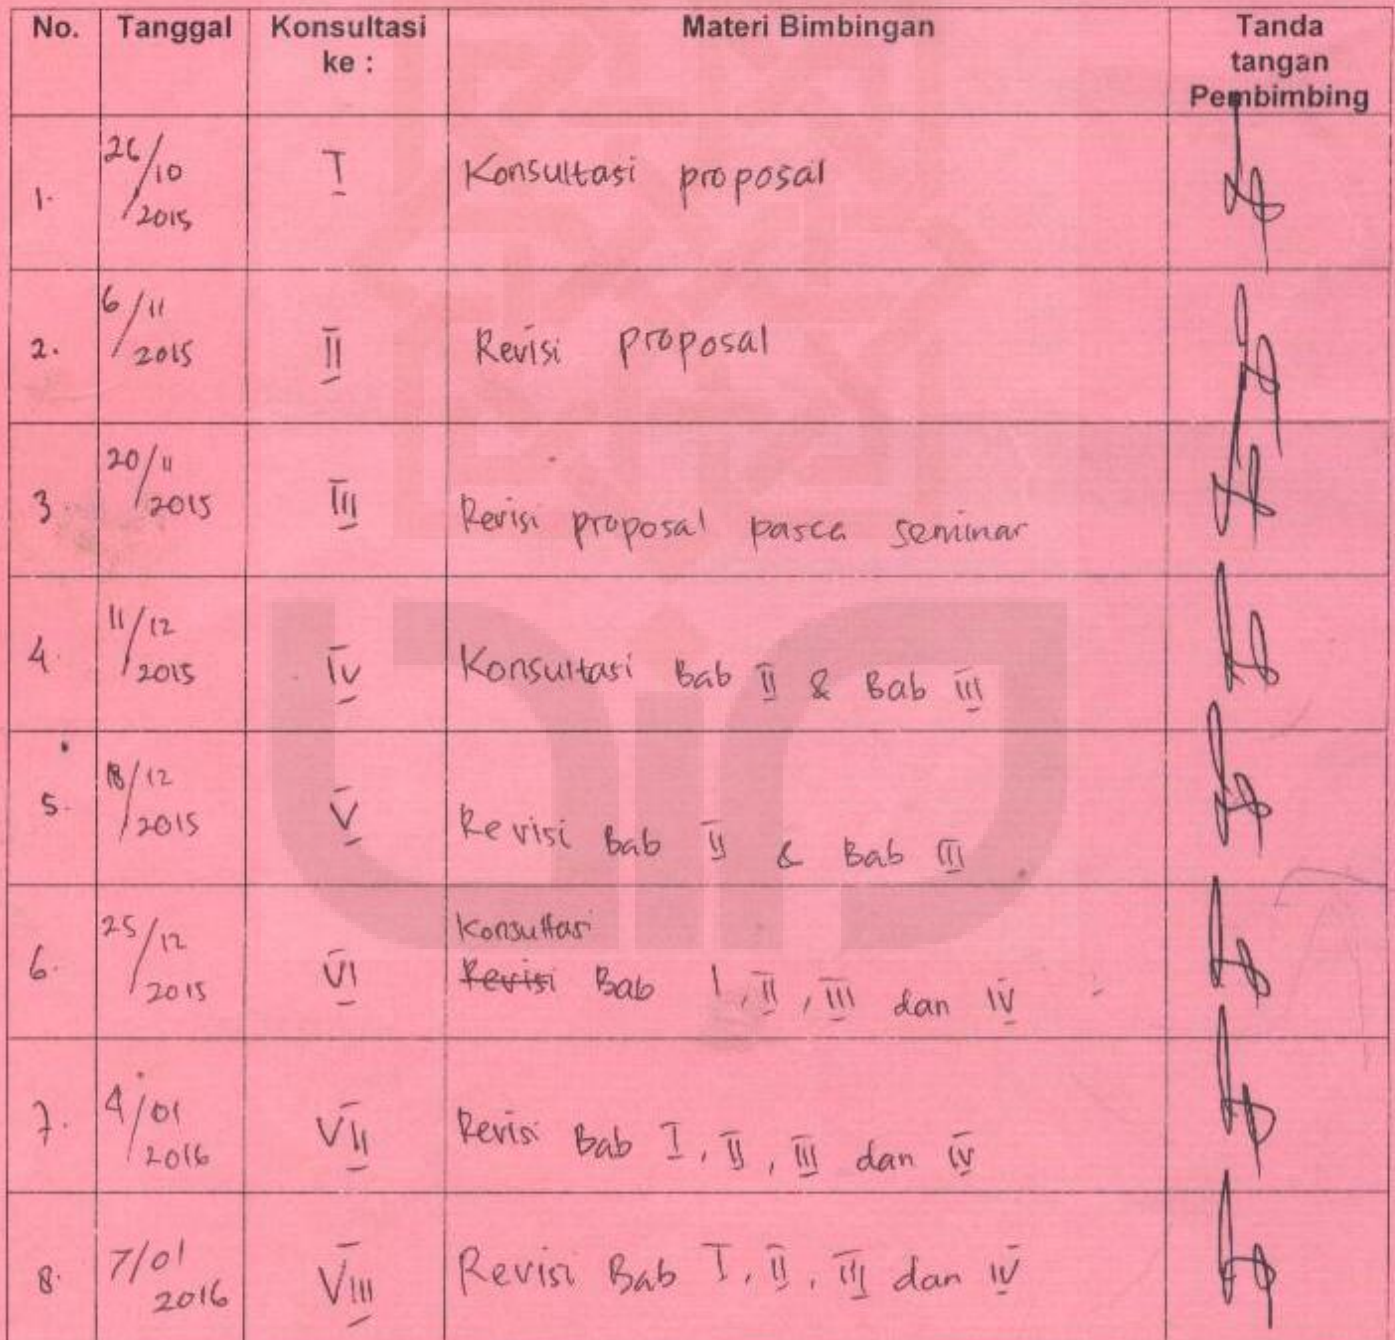 No. Tanggal Konsultasi ke : Materi Bimbingan Tanda tangan Pembimbing
1. 26/10/2015 I Konsultasi proposal
2. 6/11/2015 II Revisi proposal
3. 20/11/2015 III Revisi proposal pasca seminar
4. 11/12/2015 IV Konsultasi Bab II & Bab III
5. 18/12/2015 V Revisi Bab II & Bab III
6. 25/12/2015 VI Konsultasi
Revisi Bab I, II, III dan IV
7. 4/01/2016 VII Revisi Bab I, II, III dan IV
8. 7/01/2016 VIII Revisi Bab I, II, III dan IV